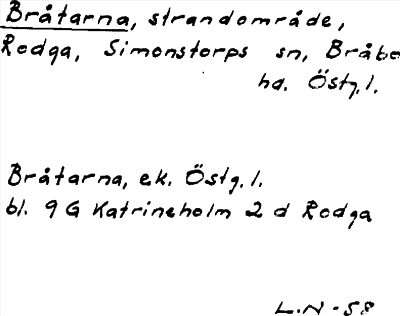 Bråtarna, strandområde,
Rodga, Simonstorps sn, Bråbo
hd. Östg.l.
Bråtarna, ek. Östg.l.
bl. 9 G Katrineholm 2 d Rodga
L.N -58